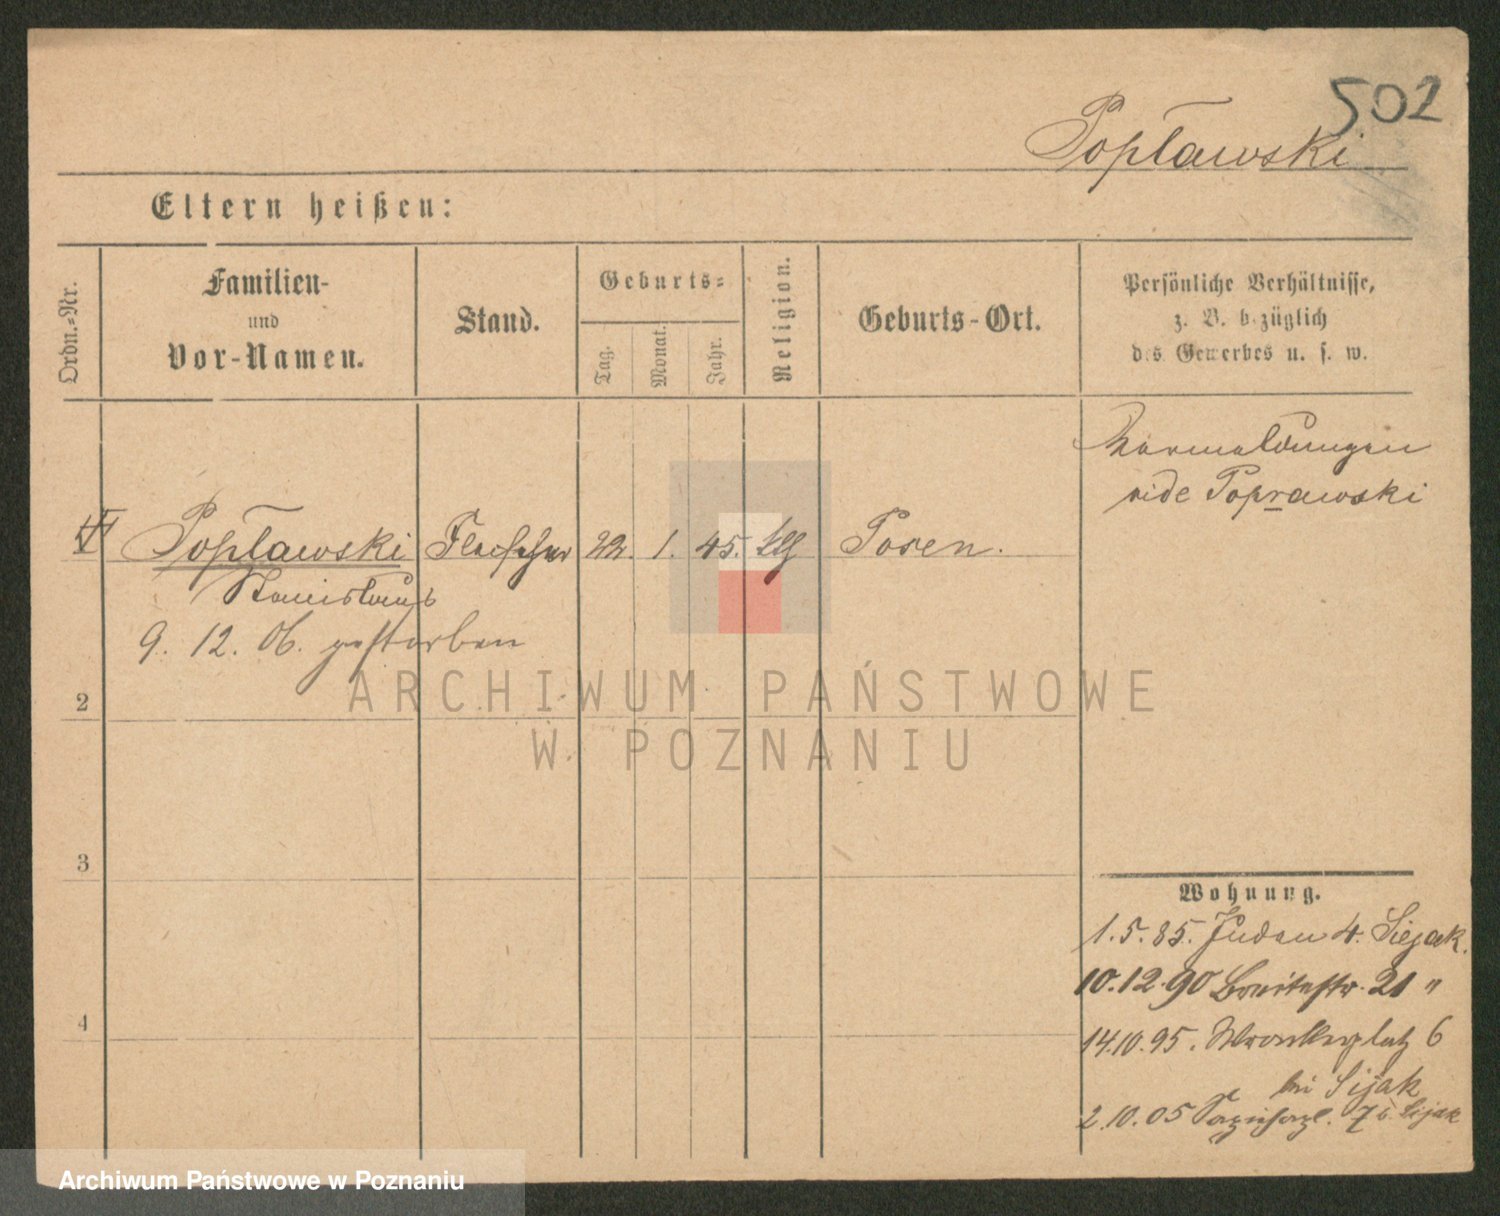 502
Popławski
Eltern heißen:
Ordn.-Nr.
Familien-
und
Vor-Namen.
Stand.
Geburts-
Tag.
Monat.
Jahr.
Religion.
Geburts-Ort.
Persönliche Verhältnisse,
z. B. bezüglich
des Gewerbes u. s. w.
Vermeldungen
vide Poprawski
Popławski Fleischer 22. 1. 45. Posen.
Stanislaus
9. 12. 06. gestorben
2
3
4
Wohnung.
1.5.85. Juden 4. Siejak.
10.12.90 Breitestr. 21 "
14.10.95. Wronkerplatz 6
bei Sijak
2.10.05 7 b. Sijak
ARCHIWUM PAŃSTWOWE
W POZNANIU
Archiwum Państwowe w Poznaniu